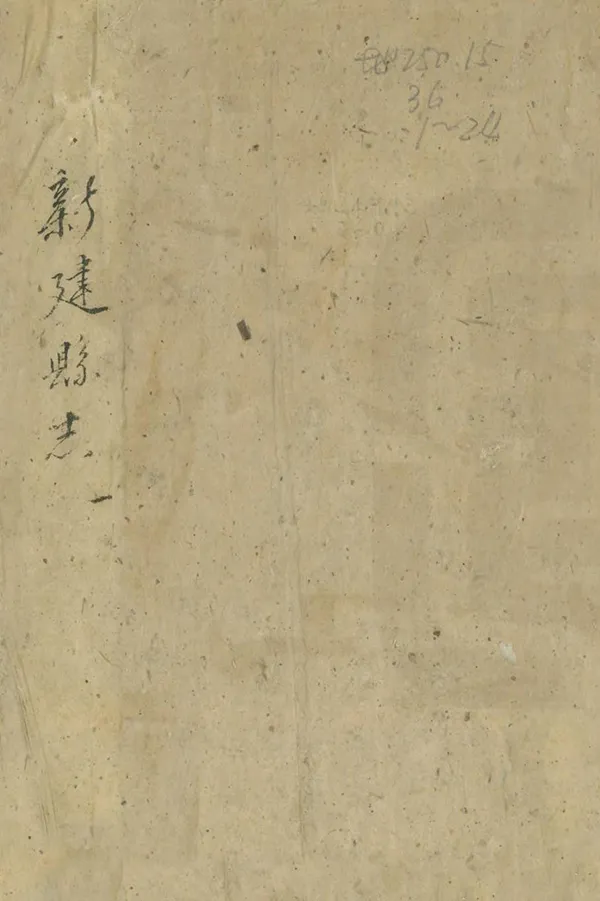 250.15
36
1~24
新建縣志 一